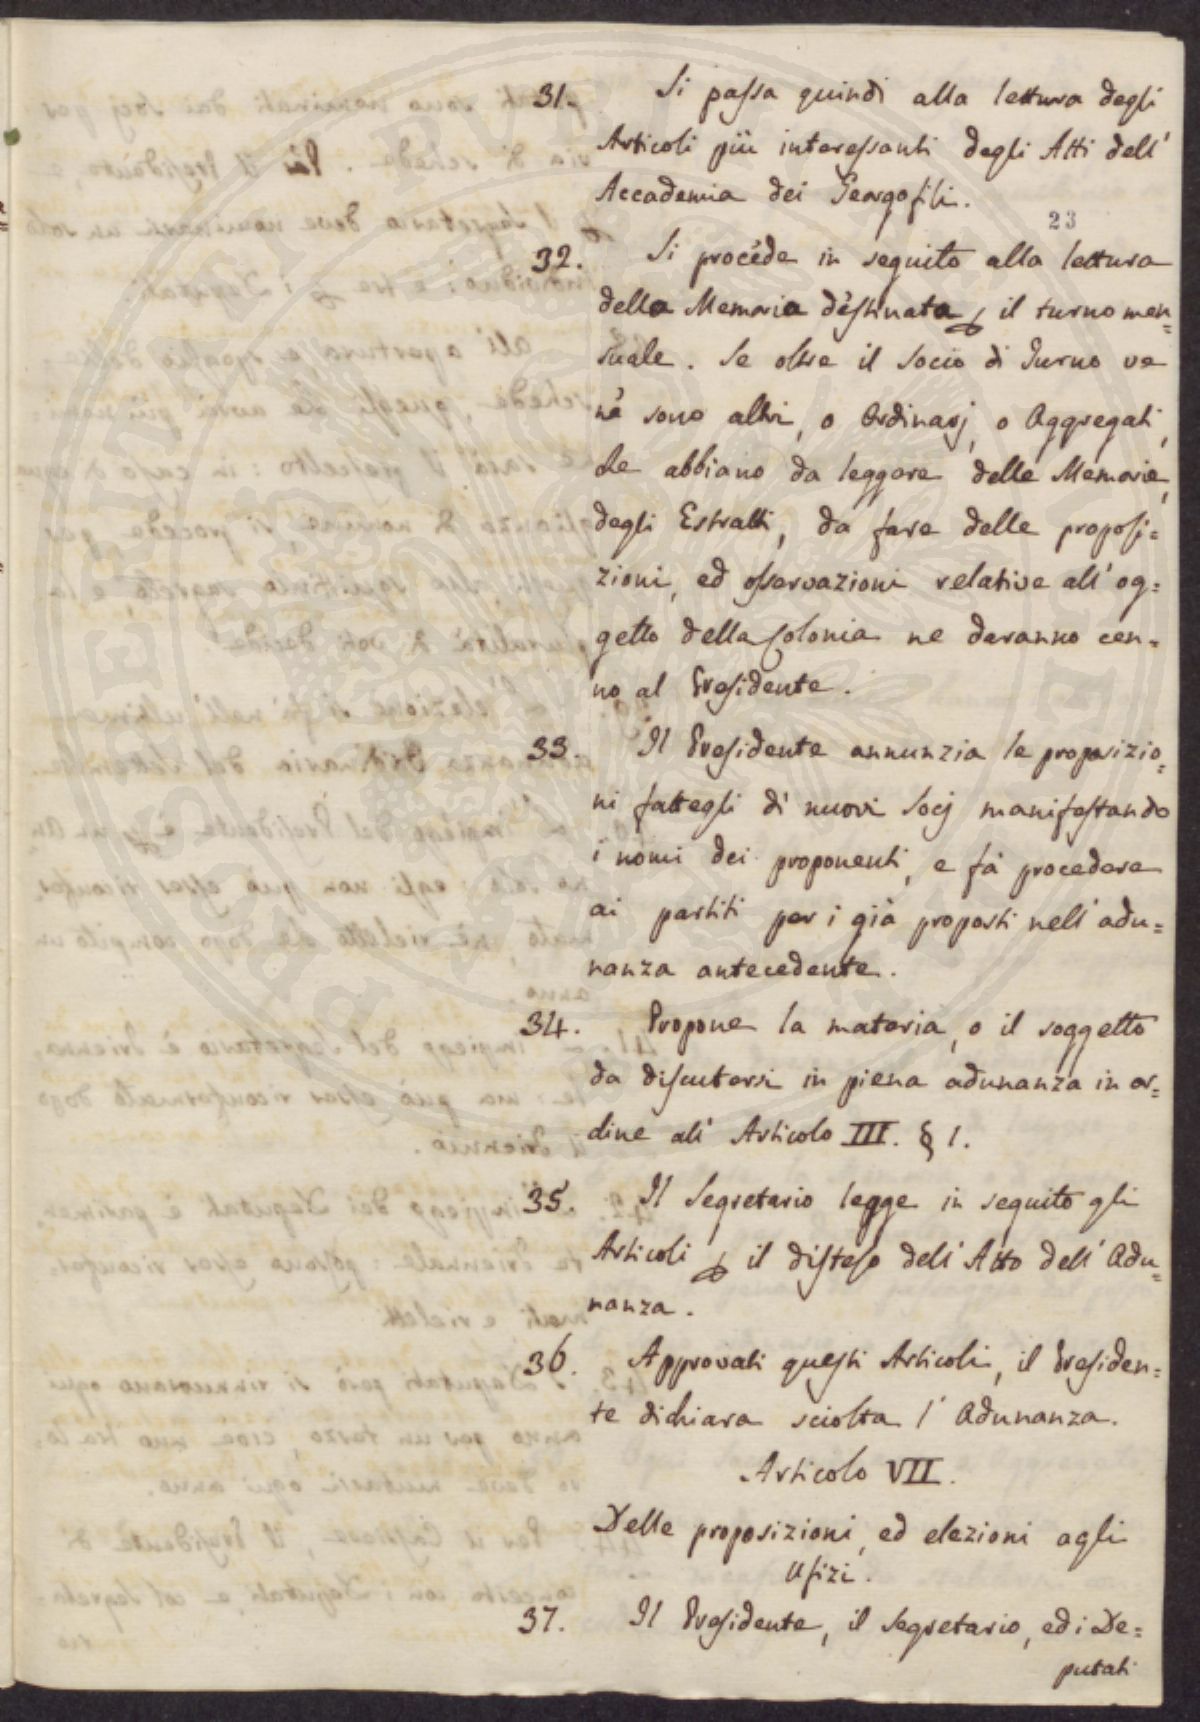 31. Si passa quindi alla lettura degli
Articoli più interessanti degli Atti dell'
Accademia dei Georgofili.
23
32. Si procede in seguito alla lettura
della Memoria destinata per il turno men=
suale. Se oltre il Socio di Turno ve
nè sono altri, o Ordinarj, o Aggregati,
che abbiano da leggere delle Memorie,
degli Estratti, da fare delle proposi=
zioni, ed osservazioni relative all' og=
getto della Colonia ne daranno cen=
no al Presidente.
33. Il Presidente annunzia le proposizio=
ni fattegli di nuovi Socj manifestando
i nomi dei proponenti, e fà procedere
ai partiti per i già proposti nell' adu=
nanza antecedente.
34. Propone la materia, o il soggetto
da discutersi in piena adunanza in or=
dine all' Articolo III. § 1.
35. Il Segretario legge in seguito gli
Articoli per il disteso dell' Atto dell' Adu=
nanza.
36. Approvati questi Articoli, il Presiden=
te dichiara sciolta l' Adunanza.
Articolo VII.
Delle proposizioni, ed elezioni agli
Ufizi.
37. Il Presidente, il Segretario, ed i De=
putati